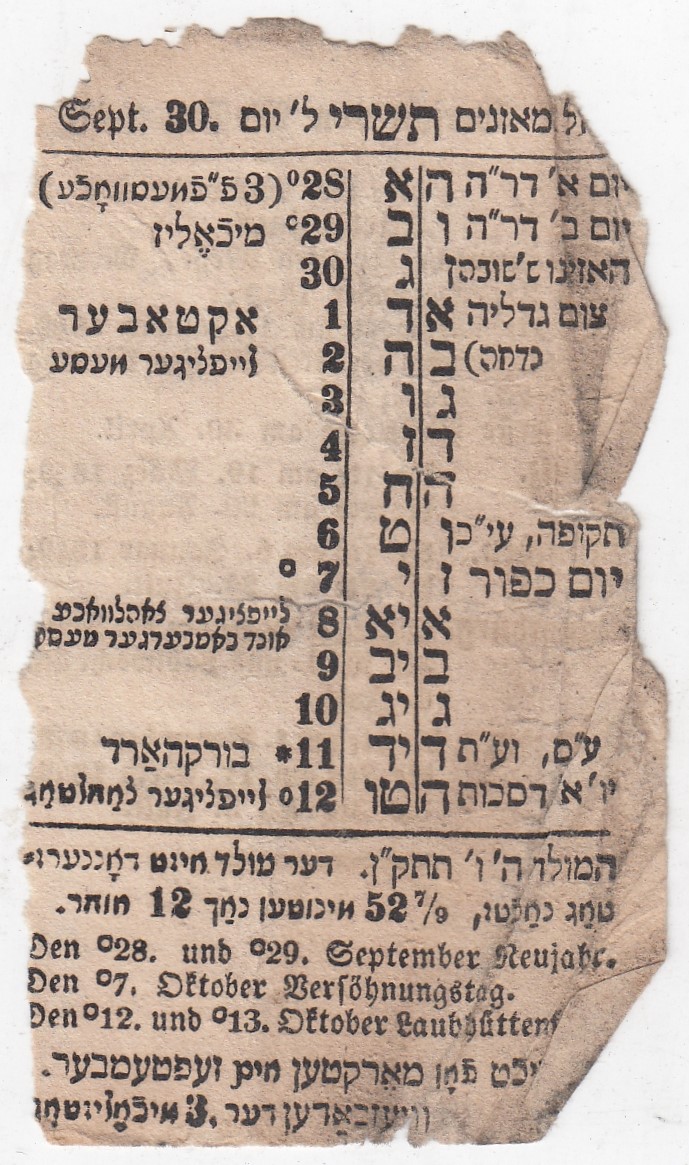 מאזנים תשרי ל׳ יום Sept. 30.
יום א׳ דר״ה ה א 28° (3 פ״פֿמעססוואָכֿע)
יום ב׳ דר״ה ו ב 29° מיכֿאֶליז
האזינו ג 30
צום גדליה א ד 1 אקטאבער
נדחה) ב ה 2 לייפּליגער מעסע
ג ו 3
ד ז 4
ה ח 5
תקופה, עי״כ ו ט 6
יום כפור ז י 7 °
א יא 8 לייפּציגער צאהלוואכע
אונד באמבערגער מעססע
ב יב 9
ג יג 10
ע״ס, וע״ת ד יד 11* בורקהאַרד
יו׳א דסכות ה טו 12° לייפּציגער צאַהלטאַג
המולד ה׳ ו׳ תתק״ן. דער מולד איזט דאָננערס⸗
טאַג נאַכֿטס, 52 7/9 מינוטען נאַך 12 אוהר.
Den °28. und °29. September Neujahr.
Den °7. Oktober Versöhnungstag.
Den °12. und °13. Oktober Laubhütten
פֿאָן מאַרקטען אים זעפטעמבער.
וויעזבאַדען דער 3.